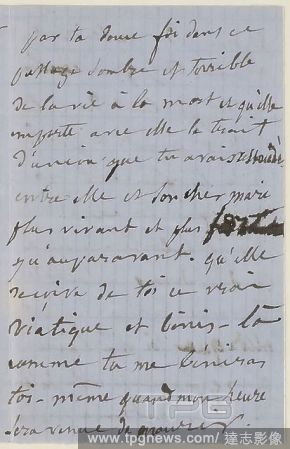 par ta douce foi dans ce
passage sombre et terrible
de la vie à la mort et qu'elle
emporte avec elle le trait
d'union que tu avais
entre elle et son cher mari
plus vivant et plus fort
qu'auparavant. qu'elle
reçoive de toi ce vrai
viatique et bénis-là
comme tu me béniras
toi-même quand mon heure
sera venue de mourir.
TPG
www.tpgnews.com / 達志影像